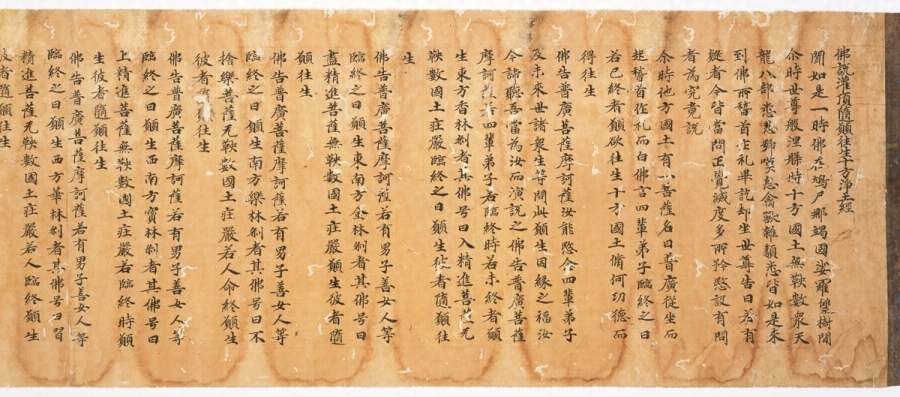 佛說灌頂隨願往生十方淨土經
聞如是一時佛在鳩尸那竭國娑羅雙樹間
尒時世尊般涅槃時十方國土無鞅數衆天
龍八部悲悲號哭念禽獸雜類悉皆如是來
到佛所稽首作礼畢訖却坐世尊告曰若有
疑者今皆當問正覺滅度多所矜愍設有問
者為究竟說
尒時他方國土有菩薩名曰普廣從坐而
起稽首作礼而白佛言四輩弟子臨終之日
若已終者願欲往生十方國土脩何功德而
得往生
佛告普廣菩薩摩訶薩汝能愍念四輩弟子
及未來世諸衆生等問此願生因緣之福汝
今諦聽吾當為汝而演說之佛告普廣菩薩
摩訶薩若四輩弟子若臨終時若未終者願
生東方香林剎者其佛号曰入精進菩薩无
鞅數國土莊嚴臨終之日願生彼者隨願往
生
佛告普廣菩薩摩訶薩若有男子善女人等
臨終之日願生東南方金林剎者其佛号曰
盡精進菩薩無鞅數國土莊嚴願生彼者隨
願往生
佛告普廣菩薩摩訶薩若有男子善女人等
臨終之日願生南方樂林剎者其佛号曰不
捨樂菩薩无鞅數國土莊嚴若人命終願生
彼者願往生
佛告普廣菩薩摩訶薩若有男子善女人等
臨終之日願生西南方寶林剎者其佛号曰
上精進菩薩無鞅數國土莊嚴若臨終時願
生彼者隨願往生
佛告普廣菩薩摩訶薩若有男子善女人等
臨終之日願生西方華林剎者其佛号曰習
精進菩薩无鞅數國土莊嚴若人臨終願生
彼者隨願往生